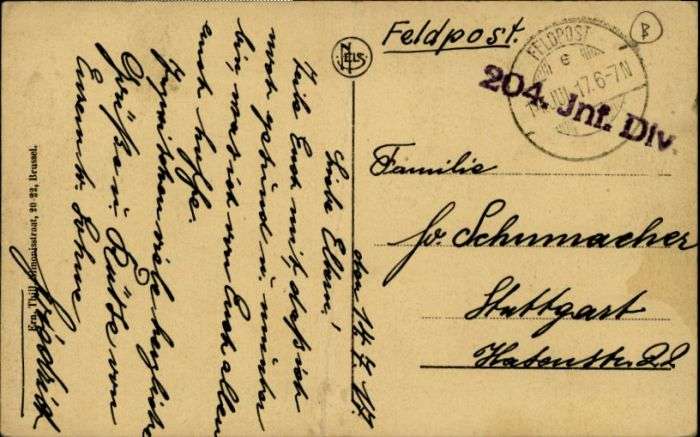 Feldpost.
B
FELDPOST
e
14. VII. 17. 6-7 N
204. Inf. Div.
NELS
Familie
Fr. Schumacher
Stuttgart
Hakenstr. 22
den 14.7.17.
Liebe Eltern!
Teile Euch mit, daß ich
noch gesund u. munter
bin, was ich von Euch allen
auch hoffe.
Inzwischen viele herzliche
Grüße u. Küsse von
Eurem l. Sohne
Ern. Thill, 20-22, Brussel.